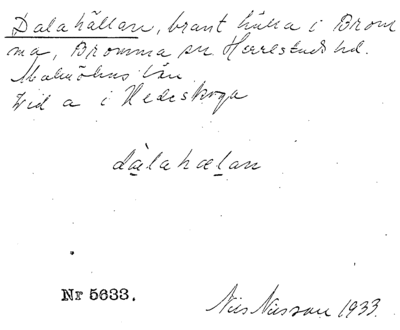 Dalahällan, brant hälla i Brom
ma, Bromma sn Herrestads hd.
Malmöhus län
Vid a i Hedeskoga
dalahælan
Nr 5633.
Nils Nilsson 1933.